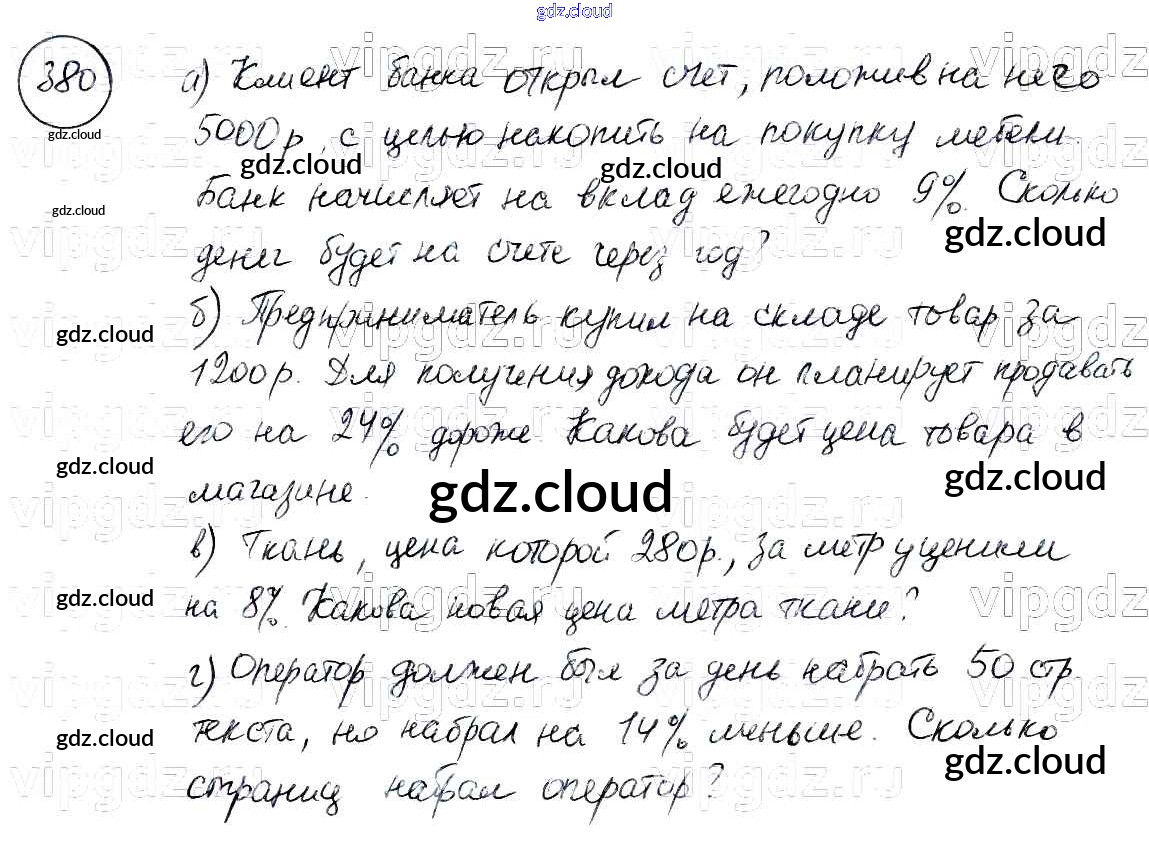 gdz.cloud
380 а) Клиент банка открыл счет, положив на него
gdz.cloud 5000 р. с целью накопить на покупку мебели.
gdz.cloud gdz.cloud
gdz.cloud Банк начисляет на вклад ежегодно 9%. Сколько
gdz.cloud
денег будет на счете через год?
б) Предприниматель купил на складе товар за
gdz.cloud
1200 р. Для получения дохода он планирует продавать
его на 24% дороже. Какова будет цена товара в
gdz.cloud gdz.cloud
магазине.
gdz.cloud
в) Ткань, цена которой 280р., за метр уценили
gdz.cloud на 8%. Какова новая цена метра ткани?
г) Оператор должен был за день набрать 50 стр
gdz.cloud текста, но набрал на 14% меньше. Сколько
gdz.cloud
страниц набрал оператор?
vipgdz.ru